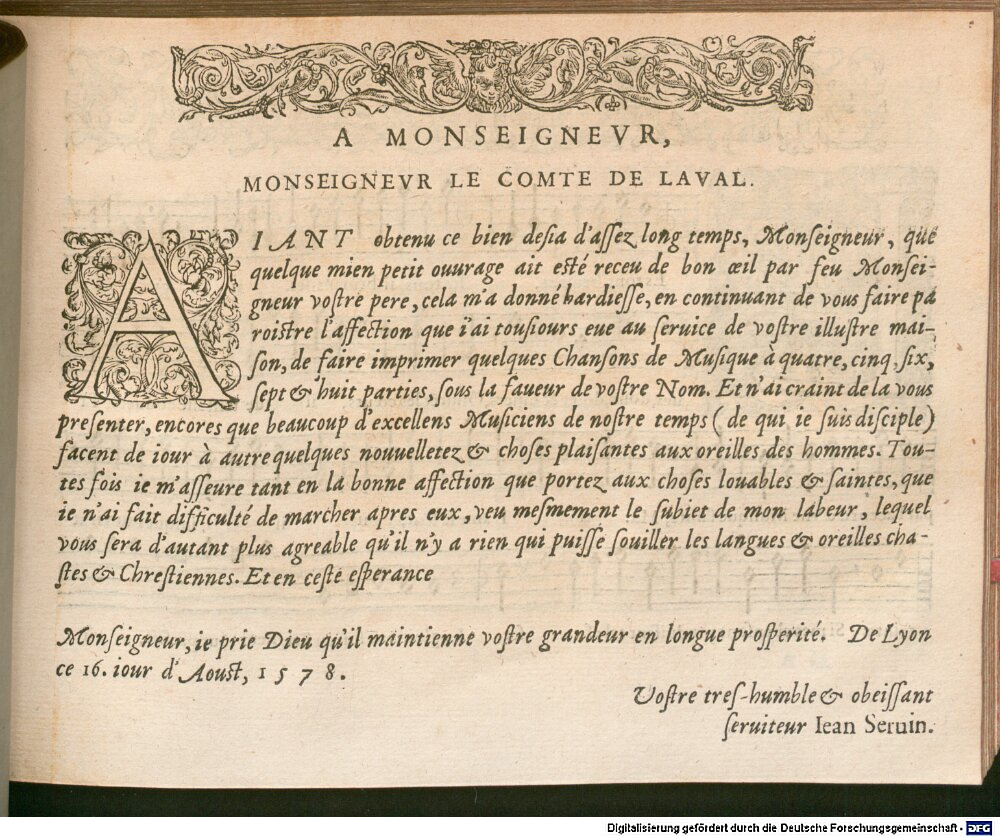 A MONSEIGNEVR,
MONSEIGNEVR LE COMTE DE LAVAL.
AIANT obtenu ce bien deſia d'aſſez long temps, Monſeigneur, que
quelque mien petit ouurage ait eſté receu de bon œil par feu Monſei-
gneur voſtre pere, cela m'a donné hardieſſe, en continuant de vous faire pa
roiſtre l'affection que i'ai touſiours eue au ſeruice de voſtre illuſtre mai-
ſon, de faire imprimer quelques Chanſons de Muſique à quatre, cinq, ſix,
ſept & huit parties, ſous la faueur de voſtre Nom. Et n'ai craint de la vous
preſenter, encores que beaucoup d'excellens Muſiciens de noſtre temps (de qui ie ſuis diſciple)
facent de iour à autre quelques nouuelletez & choſes plaiſantes aux oreilles des hommes. Tou-
tes fois ie m'aſſeure tant en la bonne affection que portez aux choſes louables & ſaintes, que
ie n'ai fait difficulté de marcher apres eux, veu meſmement le ſubiet de mon labeur, lequel
vous ſera d'autant plus agreable qu'il n'y a rien qui puiſſe ſouiller les langues & oreilles cha-
ſtes & Chreſtiennes. Et en ceſte eſperance
Monſeigneur, ie prie Dieu qu'il maintienne voſtre grandeur en longue proſperité. De Lyon
ce 16. iour d'Aouſt, 1578.
Voſtre treſ-humble & obeiſſant
ſeruiteur Iean Seruin.
Digitalisierung gefördert durch die Deutsche Forschungsgemeinschaft - DFG